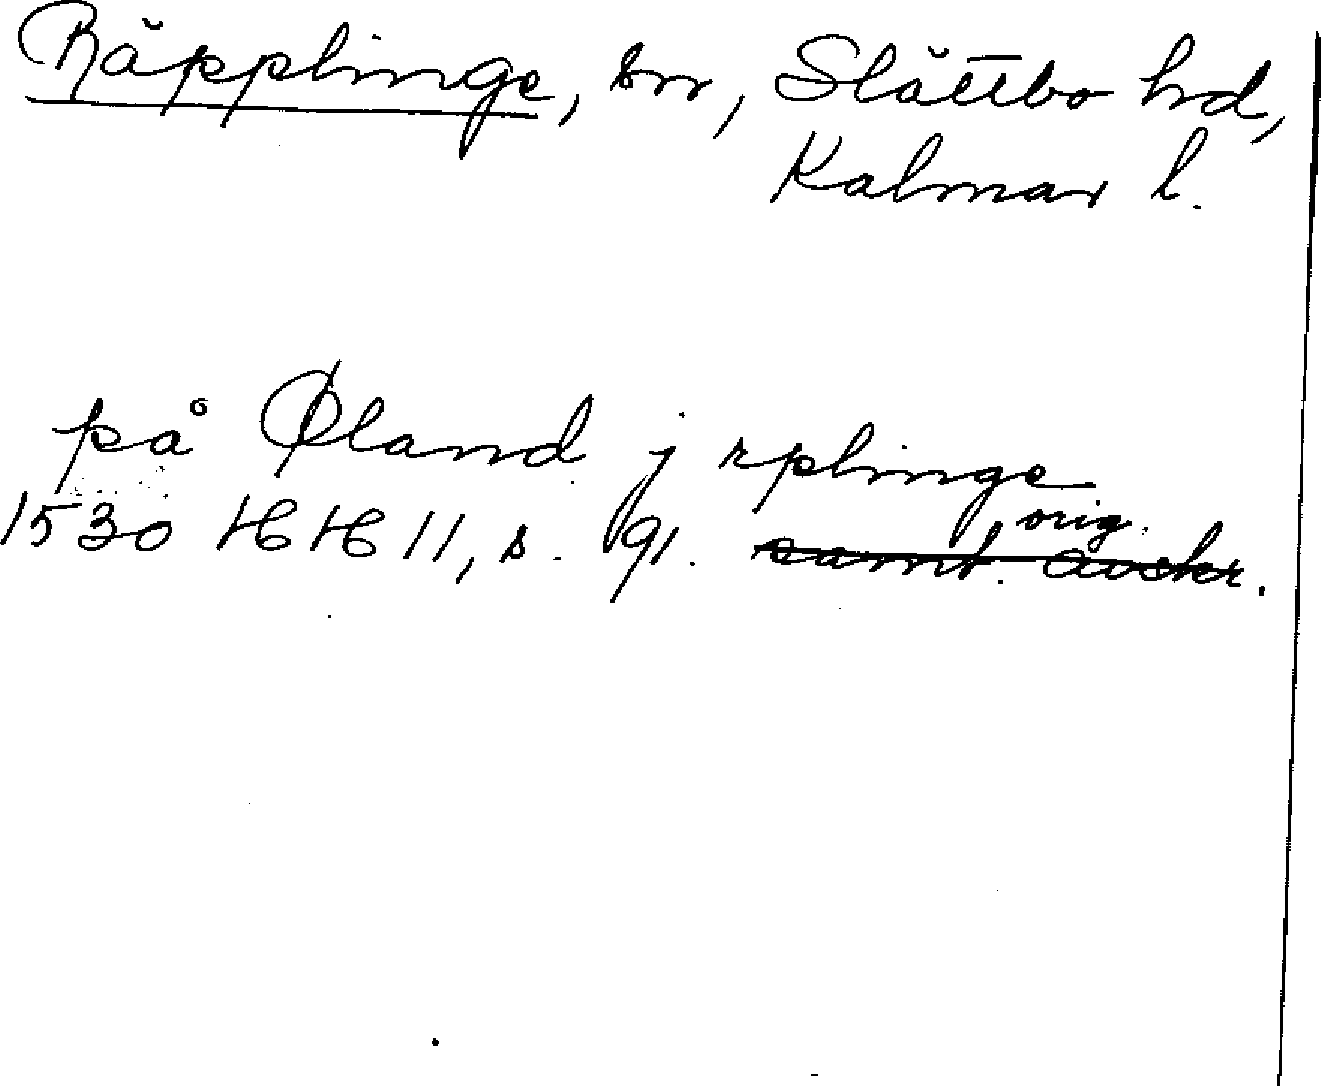 Räpplinge, sn, Slättbo hd,
Kalmar l.
på Øland j rplinge
1530 HH 11, s. 191. samt. avskr. orig.